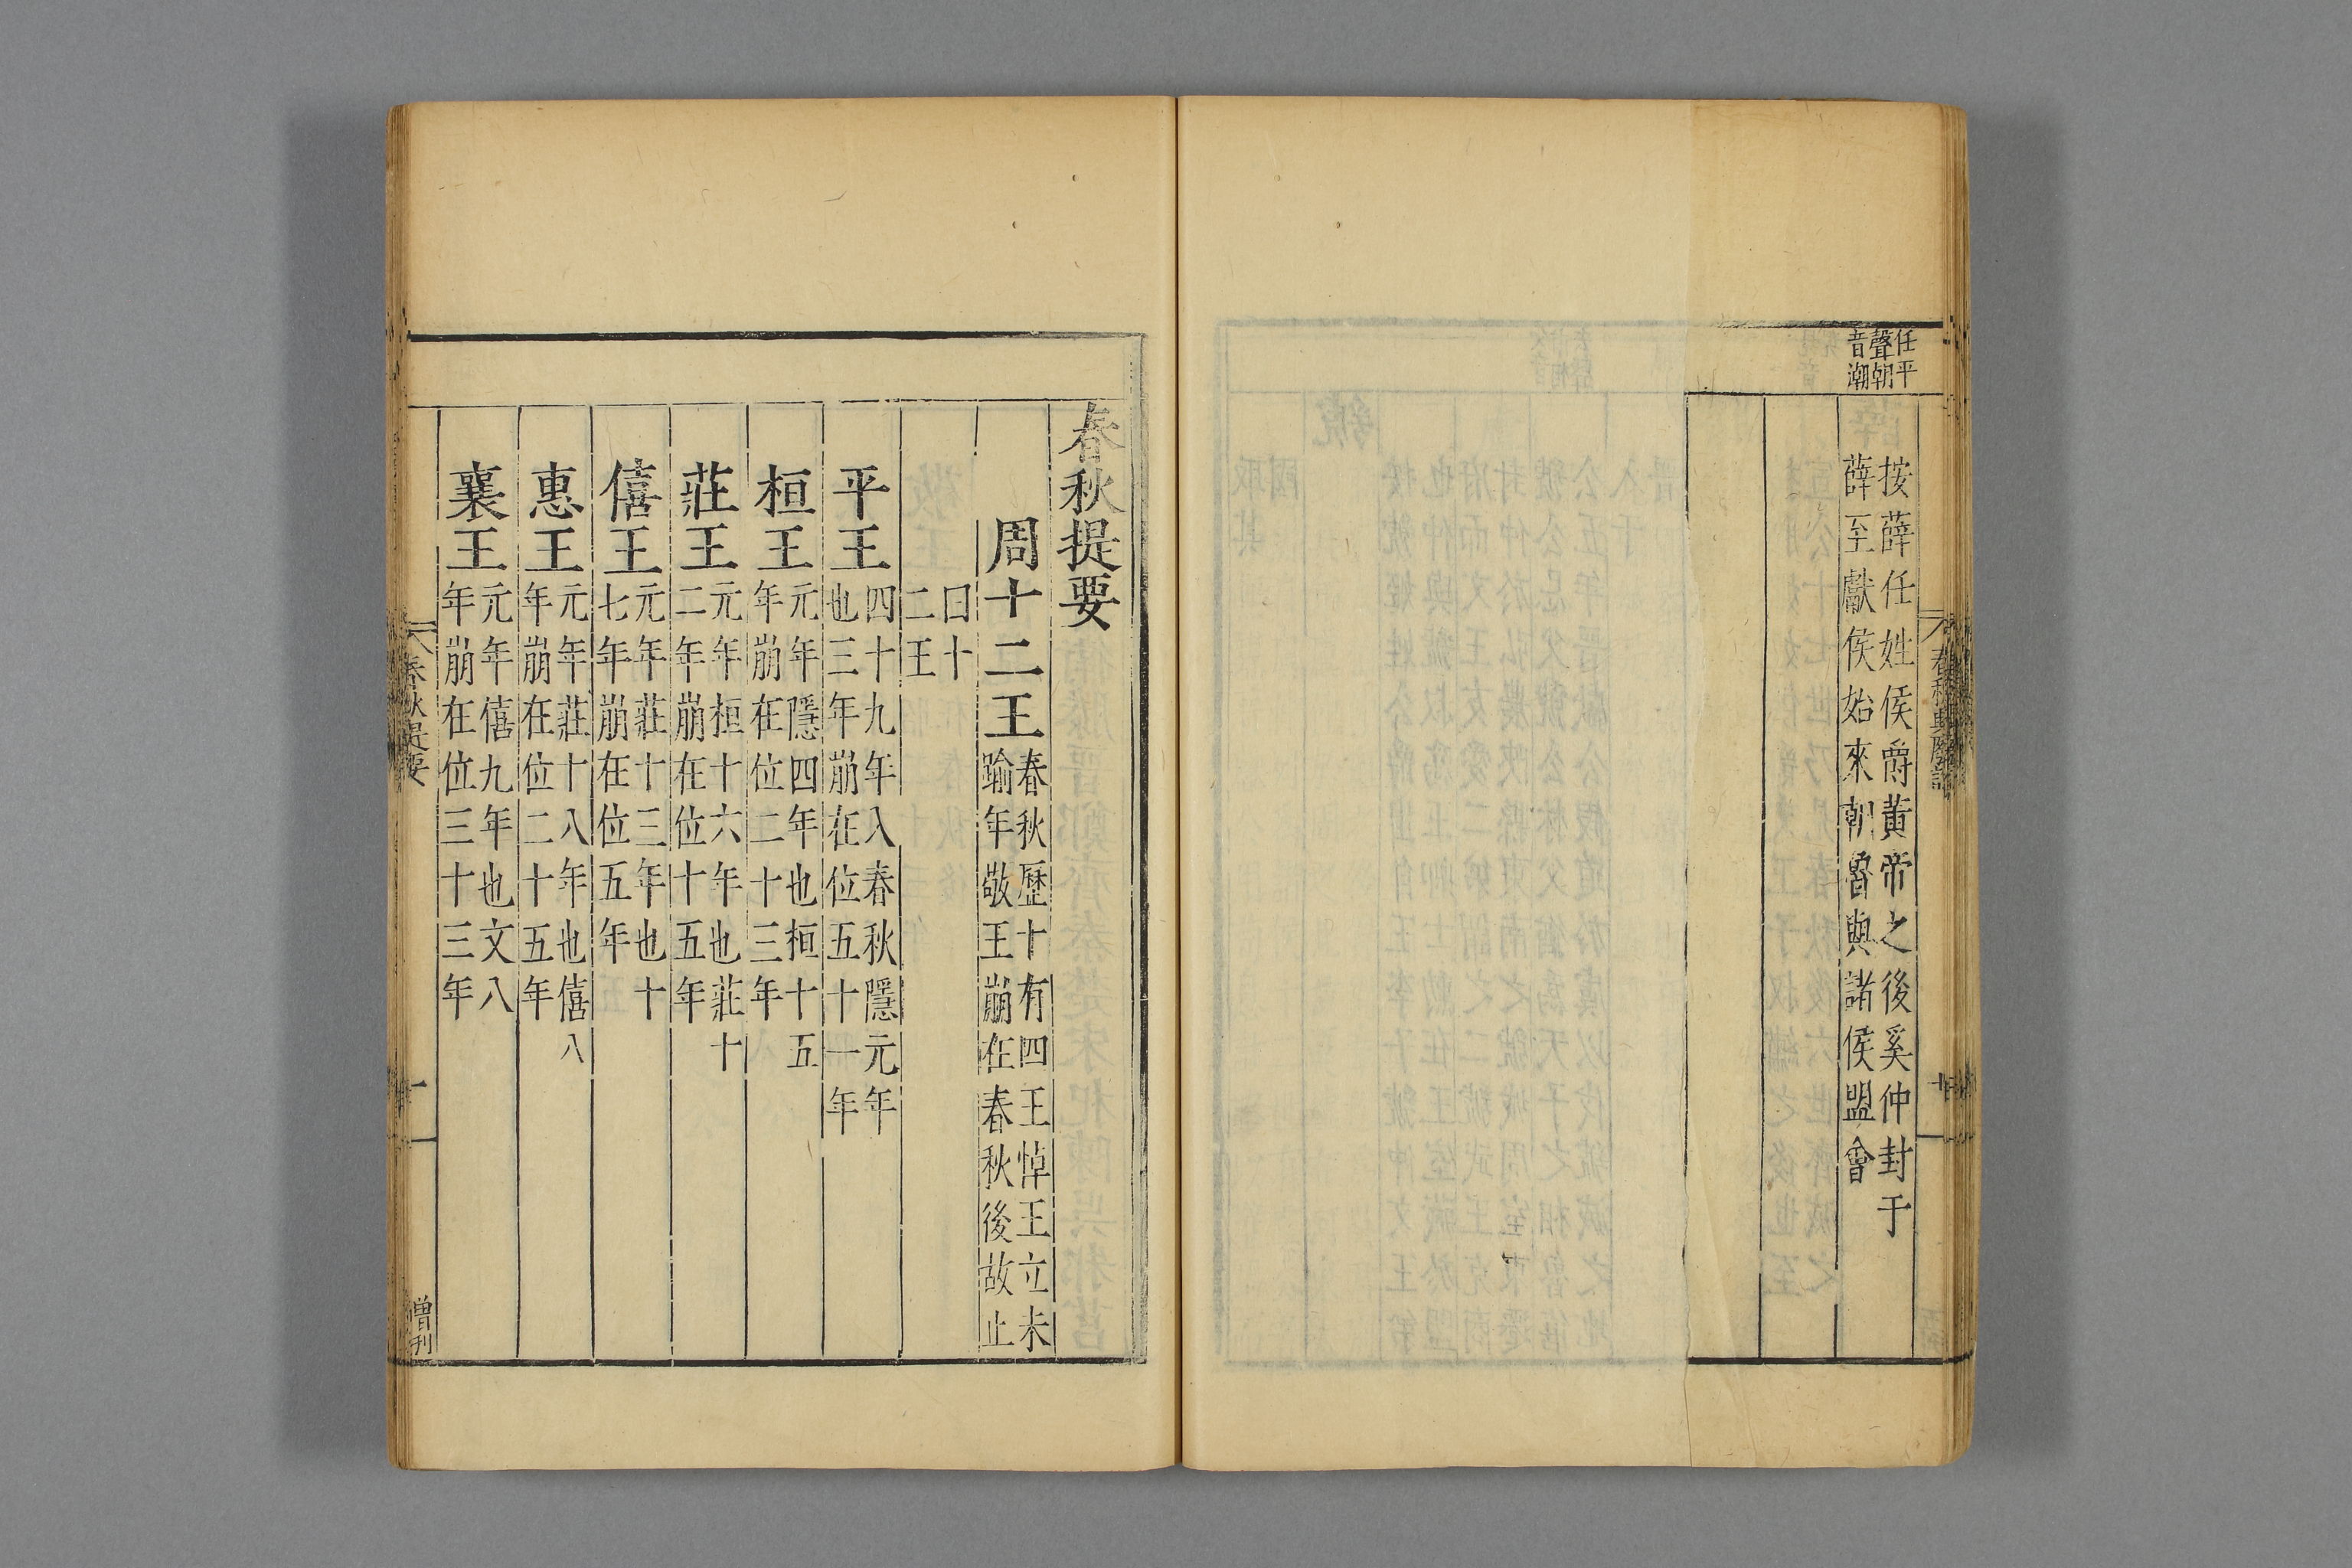 任平
聲朝
音潮
按薛任姓侯爵黄帝之後奚仲封于
薛至獻侯始來朝魯與諸侯盟會
春秋提要
周十二王
春秋歷十有四王悼王立未
踰年敬王崩在春秋後故止
曰十
二王
平王
四十九年入春秋隱元年
也三年崩在位五十一年
桓王
元年隱四年也桓十五
年崩在位二十三年
莊王
元年桓十六年也莊十
二年崩在位十五年
僖王
元年莊十三年也十
七年崩在位五年
惠王
元年莊十八年也僖八
年崩在位二十五年
襄王
元年僖九年也文八
年崩在位三十三年
春秋提要
一